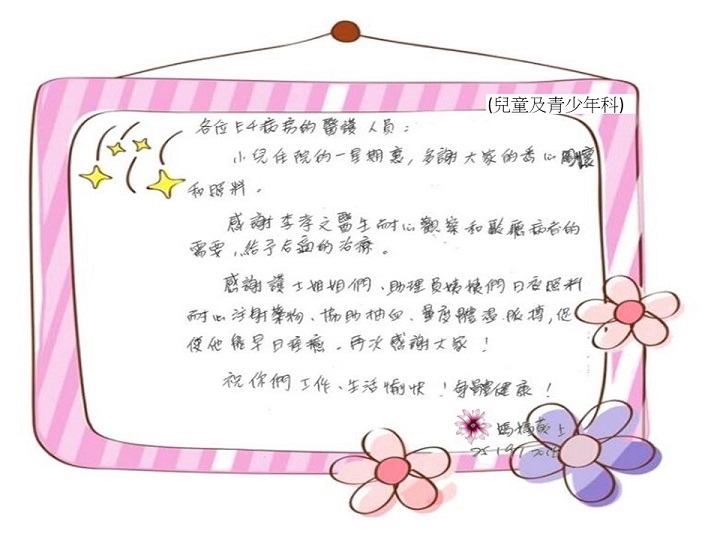 (兒童及青少年科)
各位E4病房的醫護人員:
小兒住院的一星期裏,多謝大家的悉心關懷
和照料。
感謝李孝文醫生耐心觀察和聆聽病者的
需要,給予合適的治療。
感謝護士姐姐們、助理員姨姨們日夜照料
耐心注射藥物、協助抽血、量度體溫脈搏,促
使他能早日痊癒。再次感謝大家!
祝你們工作、生活愉快!身體健康!
媽媽敬上